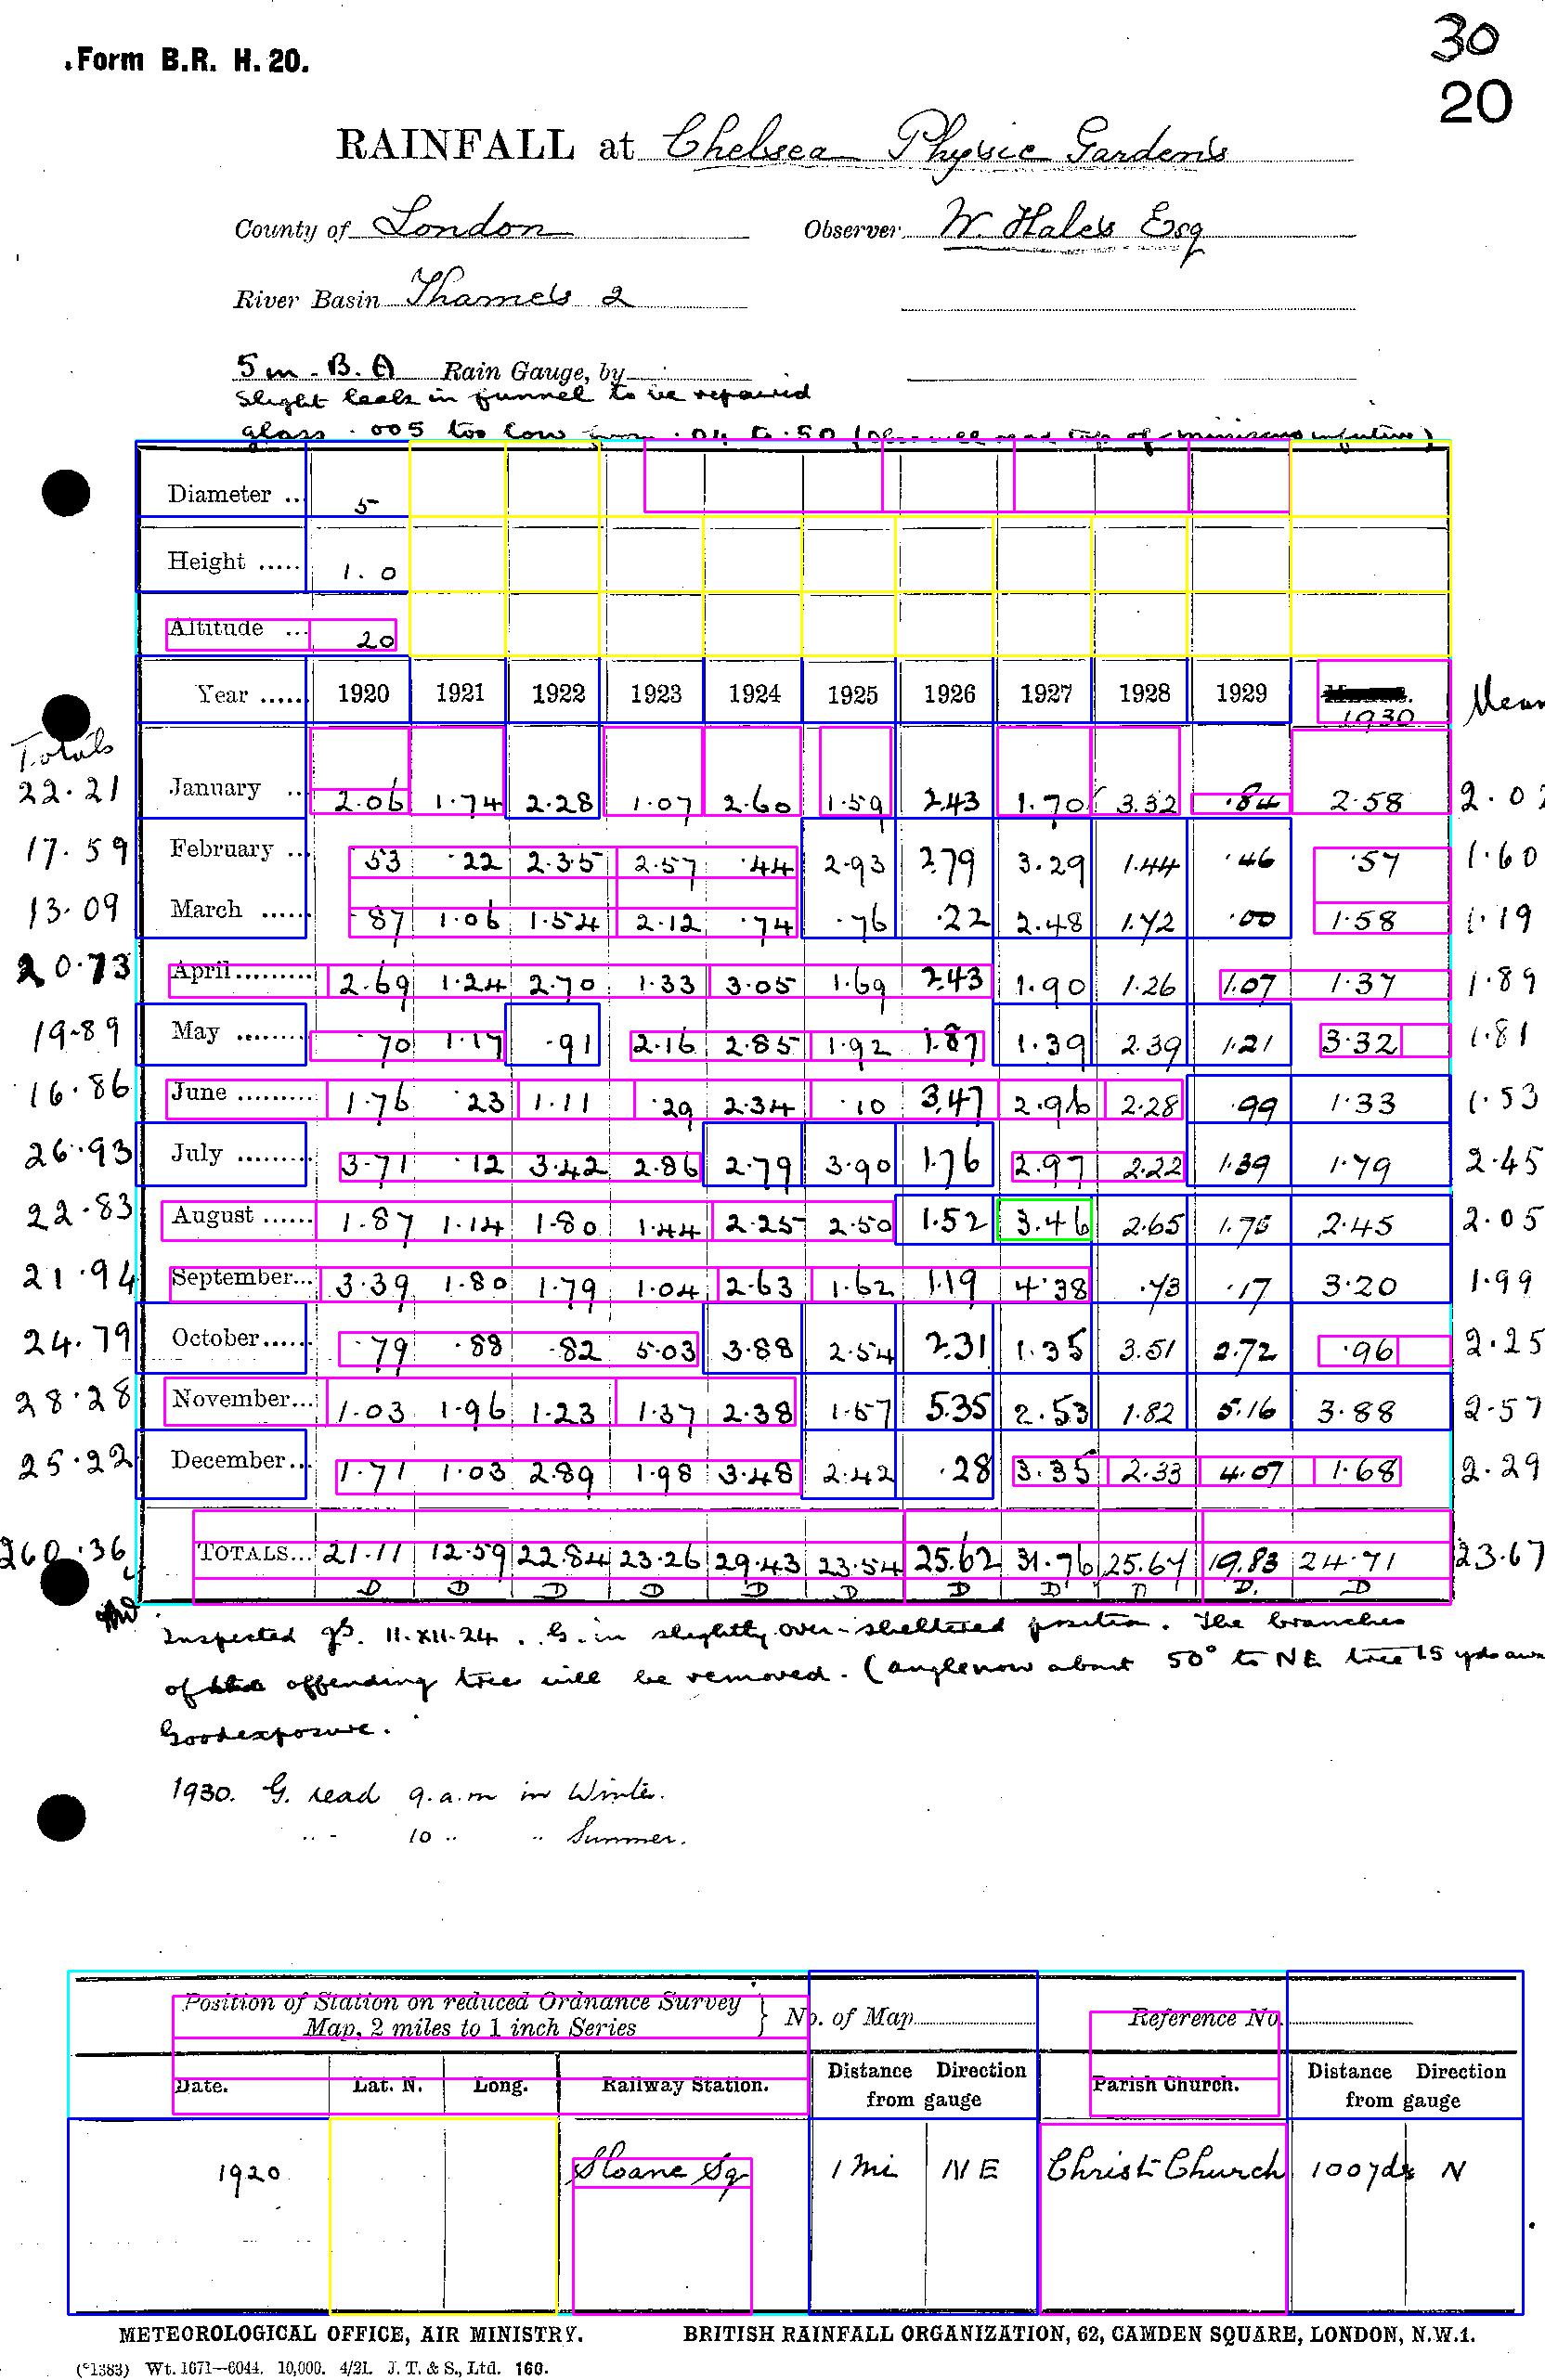 30
Form B.R. H. 20.
20
RAINFALL at Chelsea Physic Gardens
County of London Observer W. Hales Esq
River Basin Thames 2
5 in. B. A Rain Gauge, by
Slight leak in funnel to be repaired
glass .005 too low from .04 to .50 (Obs will read top of miniscus in future)
Diameter .. 5
Height ..... 1.0
Altitude ... 20
Year ...... 1920 1921 1922 1923 1924 1925 1926 1927 1928 1929 1930 Mean
Totals
22.21 January .. 2.06 1.74 2.28 1.07 2.60 1.59 2.43 1.70 3.32 .84 2.58 2.02
17.59 February ... .53 .22 2.35 2.57 .44 2.93 2.79 3.29 1.44 .46 .57 1.60
13.09 March ...... .87 1.06 1.54 2.12 .74 .76 .22 2.48 1.72 .00 1.58 1.19
20.73 April ......... 2.69 1.24 2.70 1.33 3.05 1.69 2.43 1.90 1.26 1.07 1.37 1.89
19.89 May ......... .70 1.17 .91 2.16 2.85 1.92 1.87 1.39 2.39 1.21 3.32 1.81
16.86 June ......... 1.76 .23 1.11 .29 2.34 .10 3.47 2.96 2.28 .99 1.33 1.53
26.93 July ......... 3.71 .12 3.42 2.86 2.79 3.90 1.76 2.97 2.22 1.39 1.79 2.45
22.83 August ...... 1.87 1.14 1.80 1.44 2.25 2.50 1.52 3.46 2.65 1.75 2.45 2.05
21.94 September... 3.39 1.80 1.79 1.04 2.63 1.62 1.19 4.38 .73 .17 3.20 1.99
24.79 October...... .79 .88 .82 5.03 3.88 2.54 2.31 1.35 3.51 2.72 .96 2.25
28.28 November... 1.03 1.96 1.23 1.37 2.38 1.57 5.35 2.53 1.82 5.16 3.88 2.57
25.22 December... 1.71 1.03 2.89 1.98 3.48 2.42 .28 3.35 2.33 4.07 1.68 2.29
260.36 TOTALS... 21.11 12.59 22.84 23.26 29.43 23.54 25.62 31.76 25.67 19.83 24.71 23.67
D D D D D D D D D D. D
Inspected gs. 11.XII.24. G. in slightly over-sheltered position. The branches
of the offending tree will be removed. (angle now about 50° to NE tree 15 yds
Good exposure.
1930. G. read 9.a.m in Winter.
.. - 10 .. .. Summer.
Position of Station on reduced Ordnance Survey
Map, 2 miles to 1 inch Series } No. of Map Reference No.
Date. Lat. N. Long. Railway Station. Distance Direction from gauge Parish Church. Distance Direction from gauge
1920 Sloane Sq 1 mi NE Christ Church 100yds N
METEOROLOGICAL OFFICE, AIR MINISTRY. BRITISH RAINFALL ORGANIZATION, 62, CAMDEN SQUARE, LONDON, N.W.1.
(*1383) Wt. 1671—6044. 10,000. 4/21. J. T. & S., Ltd. 160.